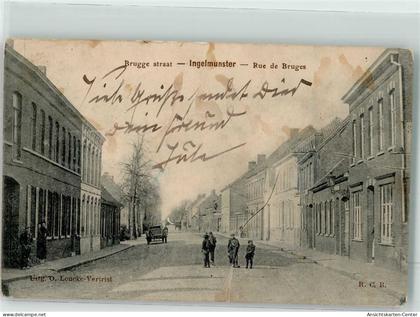 Brugge straat — Ingelmunster — Rue de Bruges
Viele Grüße sendet Dir
dein Freund
Uitg. O. Loucke-Vertriest
R. C. B.
Ansichtskarten-Center